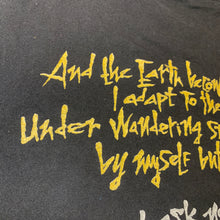 And the Earth becom
I adapt to the
Under Wandering s
by myself but